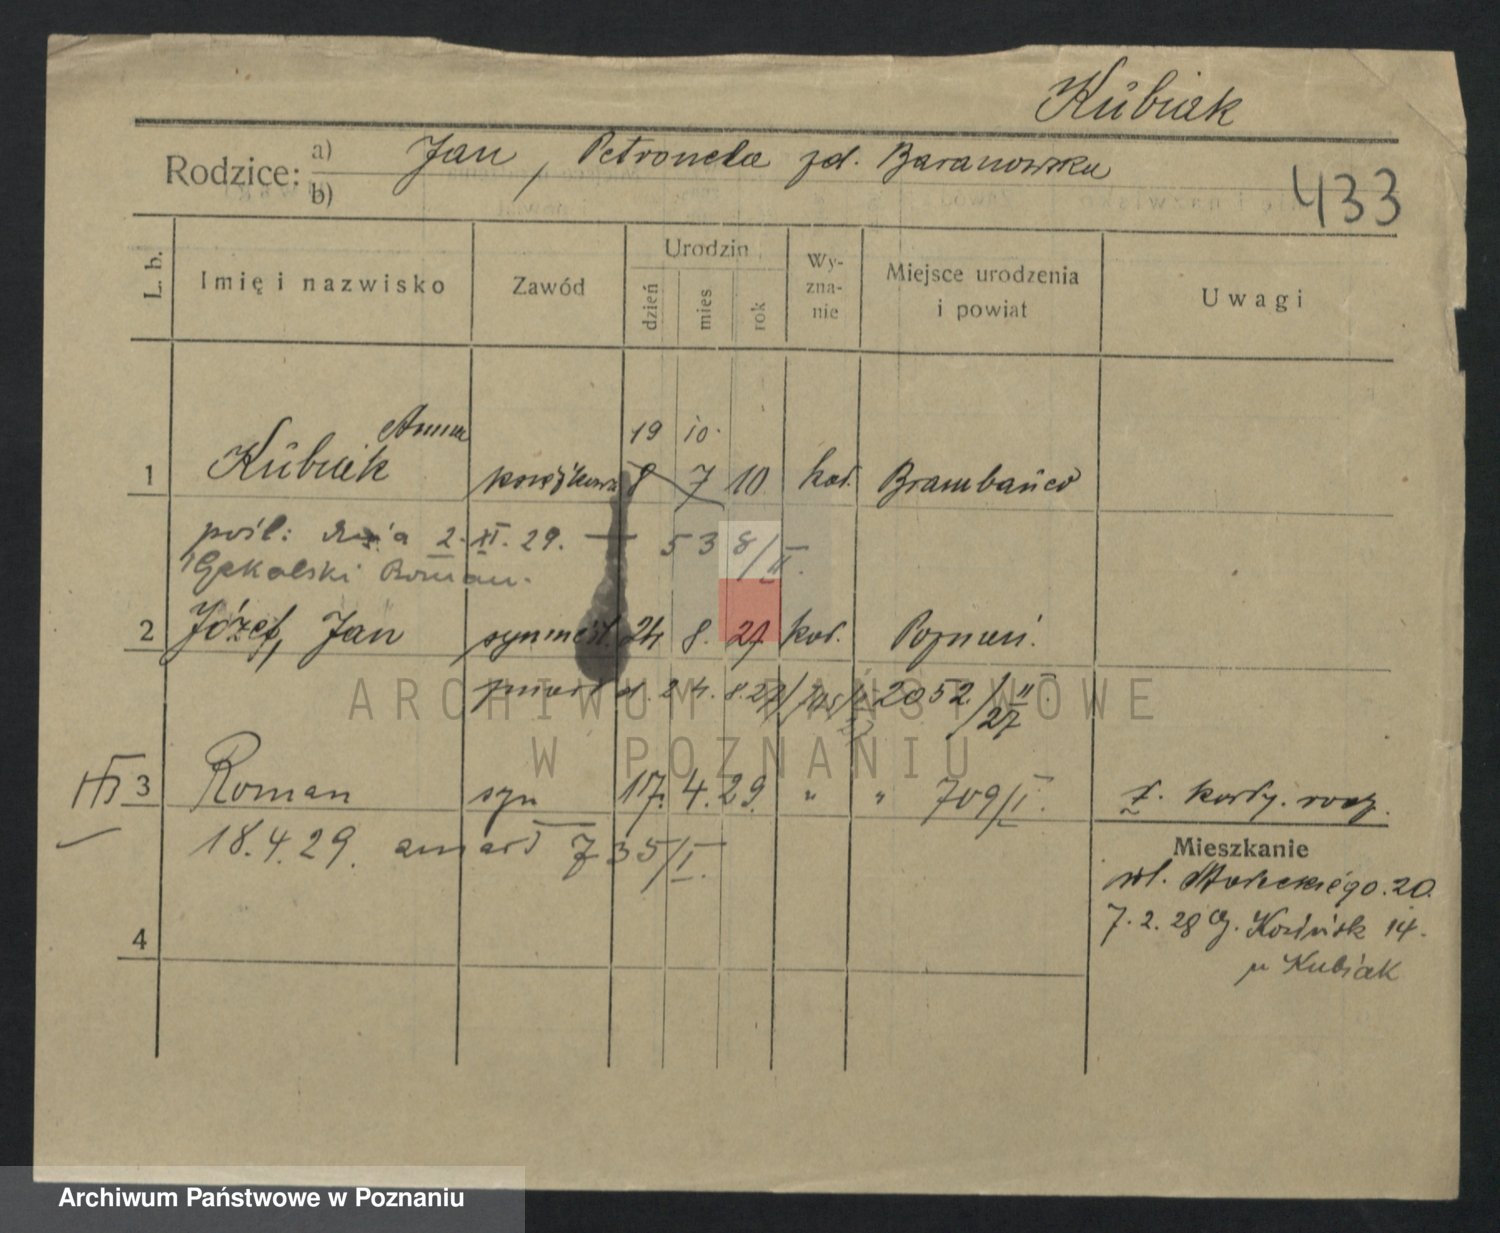 Kubiak
Rodzice: a) b) Jan, Petronela zd. Baranowska
433
L. b. Imię i nazwisko Zawód Urodzin dzień mies rok Wyznanie Miejsce urodzenia i powiat Uwagi
Anna 19 10.
1 Kubiak 8 7 10 kat.
pośl: dnia 2. XI. 29. 53 8/II.
Roman.
2 Józef, Jan 24 8. 27 kat. Poznań.
zmarł d. 24. 8. 27 2052/II 27
ARCHIWUM PAŃSTWOWE
W POZNANIU
3 Roman syn 17. 4. 29. " " 709/I.
18. 4. 29. zmarł 735/I.
Mieszkanie
20.
7. 2. 28 14.
4
u Kubiak
Archiwum Państwowe w Poznaniu